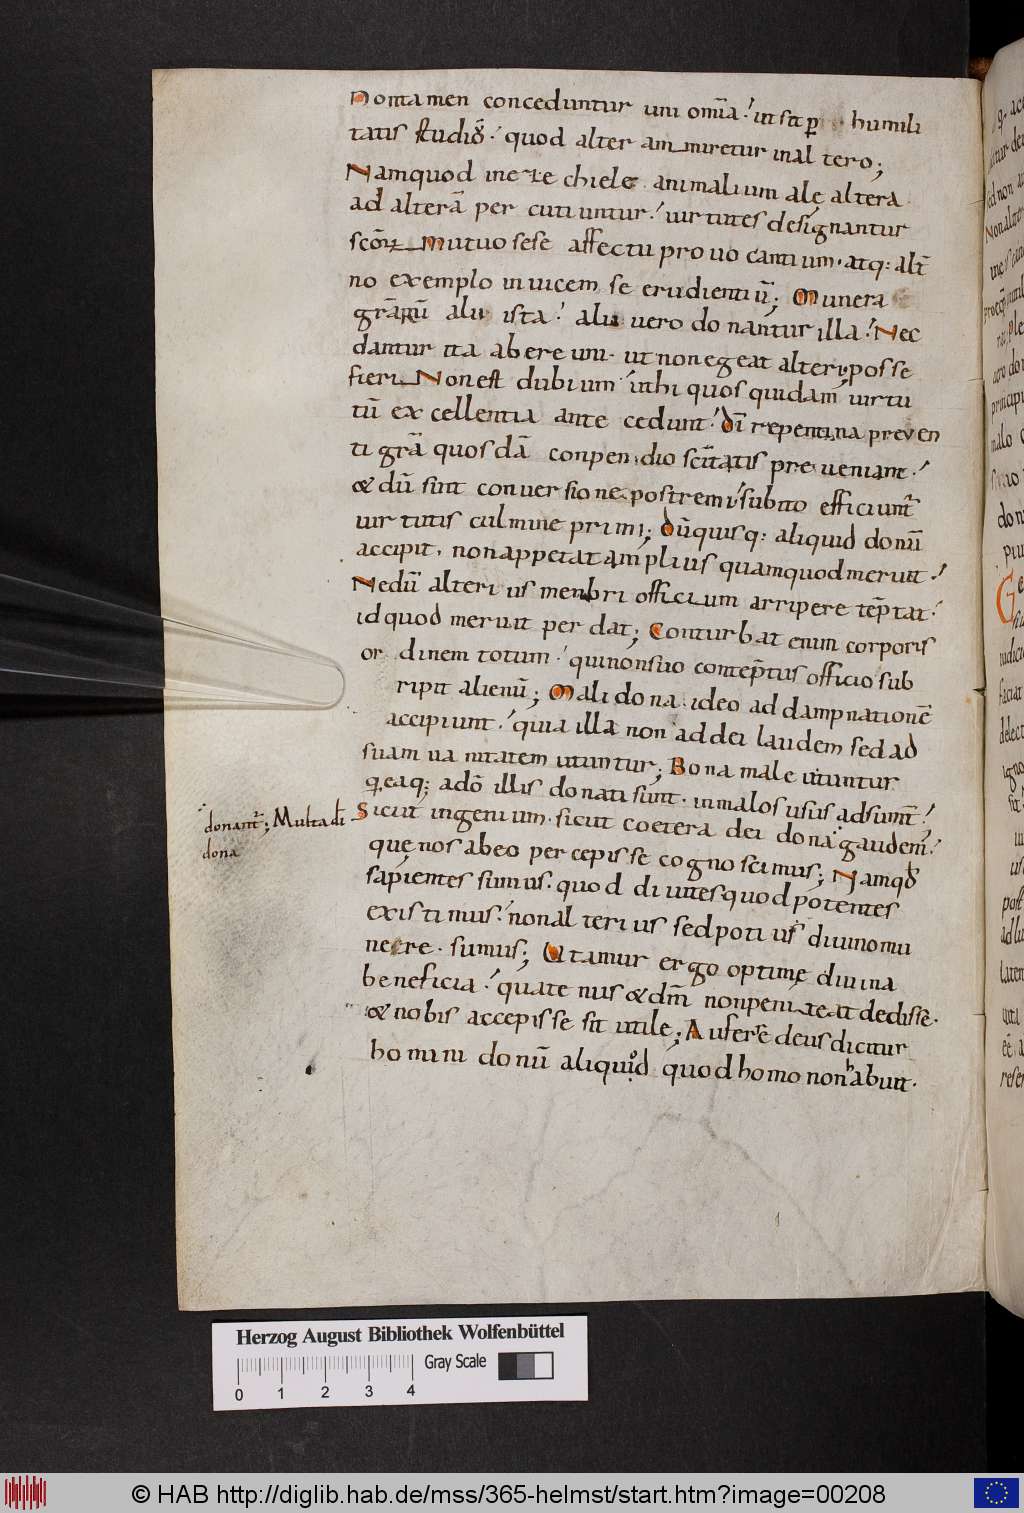 Non tamen conceduntur uni om̄ia. ut sit p̱ humili
tatis studiū. quod alter ammiretur in altero;
Nam quod in ezechiele animalium alę altera
ad alterā percutiuntur. uirtutes designantur
scōꝝ mutuo sese affectu prouocantium. atq: alt̄
no exemplo inuicem se erudientiū; Munera
grārū alii ista. alii uero donantur illa. Nec
dantur ita ab ere uni. ut non egeat alteri posse
fieri. Non est dubium. uthi quos quidam uirtu
tū excellentia antecedunt. dī repentina preuen
ti grā quosdā conpendio scītatis preueniant.
& dū sint conuersione postremi. subito efficiunt̄
uirtutis culmine primi; dū quisq: aliquid donū
accipit, non appetat amplius quam quod meruit.
Ne dū alterius menbri officium arripere tēptat.
id quod meruit perdat; Conturbat enim corporis
ordinem totum. qui non suo contēptus officio sub
ripit alienū; Mali dona ideo ad dampnationē
accipiunt. quia illa non ad dei laudem sed ad
suam uanitatem utuntur; Bona male utuntur
q̱ ea q; a dō illis donati sunt. in malos usus adsumt̄.
donant̄; Multa dī
dona
Sicut ingenium. sicut coetera dei dona gaudem̄.
que nos ab eo percepisse cognoscimus; Nam qđ
sapientes sumus. quod diuites quod potentes
existimus. non alterius sed potius diuino mu
nere. sumus; Utamur ergo optimę diuina
beneficia. quatenus & dm̄ non peniteat dedissē.
& nobis accepisse sit utile; Auferrē deus dicitur
homini donū aliquid quod homo non habuit.
Herzog August Bibliothek Wolfenbüttel
0 1 2 3 4
Gray Scale
© HAB http://diglib.hab.de/mss/365-helmst/start.htm?image=00208